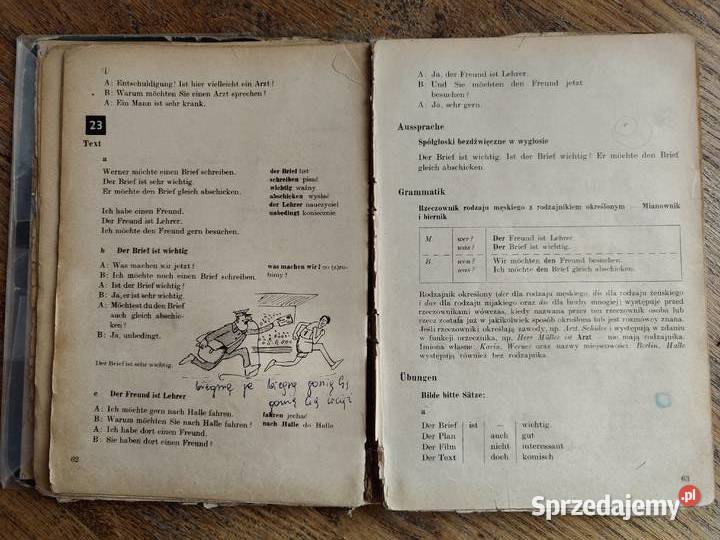 A: Entschuldigung! Ist hier vielleicht ein Arzt?
B: Warum möchten Sie einen Arzt sprechen?
A: Ein Mann ist sehr krank.
23
Text
a
Werner möchte einen Brief schreiben.
Der Brief ist sehr wichtig.
Er möchte den Brief gleich abschicken.
Ich habe einen Freund.
Der Freund ist Lehrer.
Ich möchte den Freund gern besuchen.
der Brief list
schreiben pisać
wichtig ważny
abschicken wysłać
der Lehrer nauczyciel
unbedingt koniecznie
b Der Brief ist wichtig
A: Was machen wir jetzt?
B: Ich möchte noch einen Brief schreiben.
A: Ist der Brief wichtig?
B: Ja, er ist sehr wichtig.
A: Möchtest du den Brief
auch gleich abschic-
ken?
B: Ja, unbedingt.
was machen wir? co (z)ro-
bimy?
Der Brief ist sehr wichtig.
biegnę
c Der Freund ist Lehrer
A: Ich möchte gern nach Halle fahren.
B: Warum möchten Sie nach Halle fahren?
A: Ich habe dort einen Freund.
B: Sie haben dort einen Freund?
fahren jechać
nach Halle do Halle
62
A: Ja, der Freund ist Lehrer.
B: Und Sie möchten den Freund jetzt
besuchen?
A: Ja, sehr gern.
Aussprache
Spółgłoski bezdźwięczne w wygłosie
Der Brief ist wichtig. Ist der Brief wichtig? Er möchte den Brief
gleich abschicken.
Grammatik
Rzeczownik rodzaju męskiego z rodzajnikiem określonym — Mianownik
i biernik
M wer? Der Freund ist Lehrer.
was? Der Brief ist wichtig.
B wen? Wir möchten den Freund besuchen.
was? Ich möchte den Brief gleich abschicken.
Rodzajnik określony (der dla rodzaju męskiego, die dla rodzaju żeńskiego
i das dla rodzaju nijakiego oraz die dla liczby mnogiej) występuje przed
rzeczownikami wówczas, kiedy nazwana przez ten rzeczownik osoba lub
rzecz została już w jakikolwiek sposób określona lub jest rozmówcy znana.
Jeśli rzeczowniki określają zawody, np. Arzt, Schüler i występują w zdaniu
w funkcji orzecznika, np. Herr Müller ist Arzt — nie mają rodzajnika.
Imiona własne Karin, Werner oraz nazwy miejscowości: Berlin, Halle
występują również bez rodzajnika.
Übungen
Bilde bitte Sätze:
a
Der Brief ist — wichtig.
Der Plan auch gut
Der Film nicht interessant
Der Text doch komisch
63
Sprzedajemy.pl